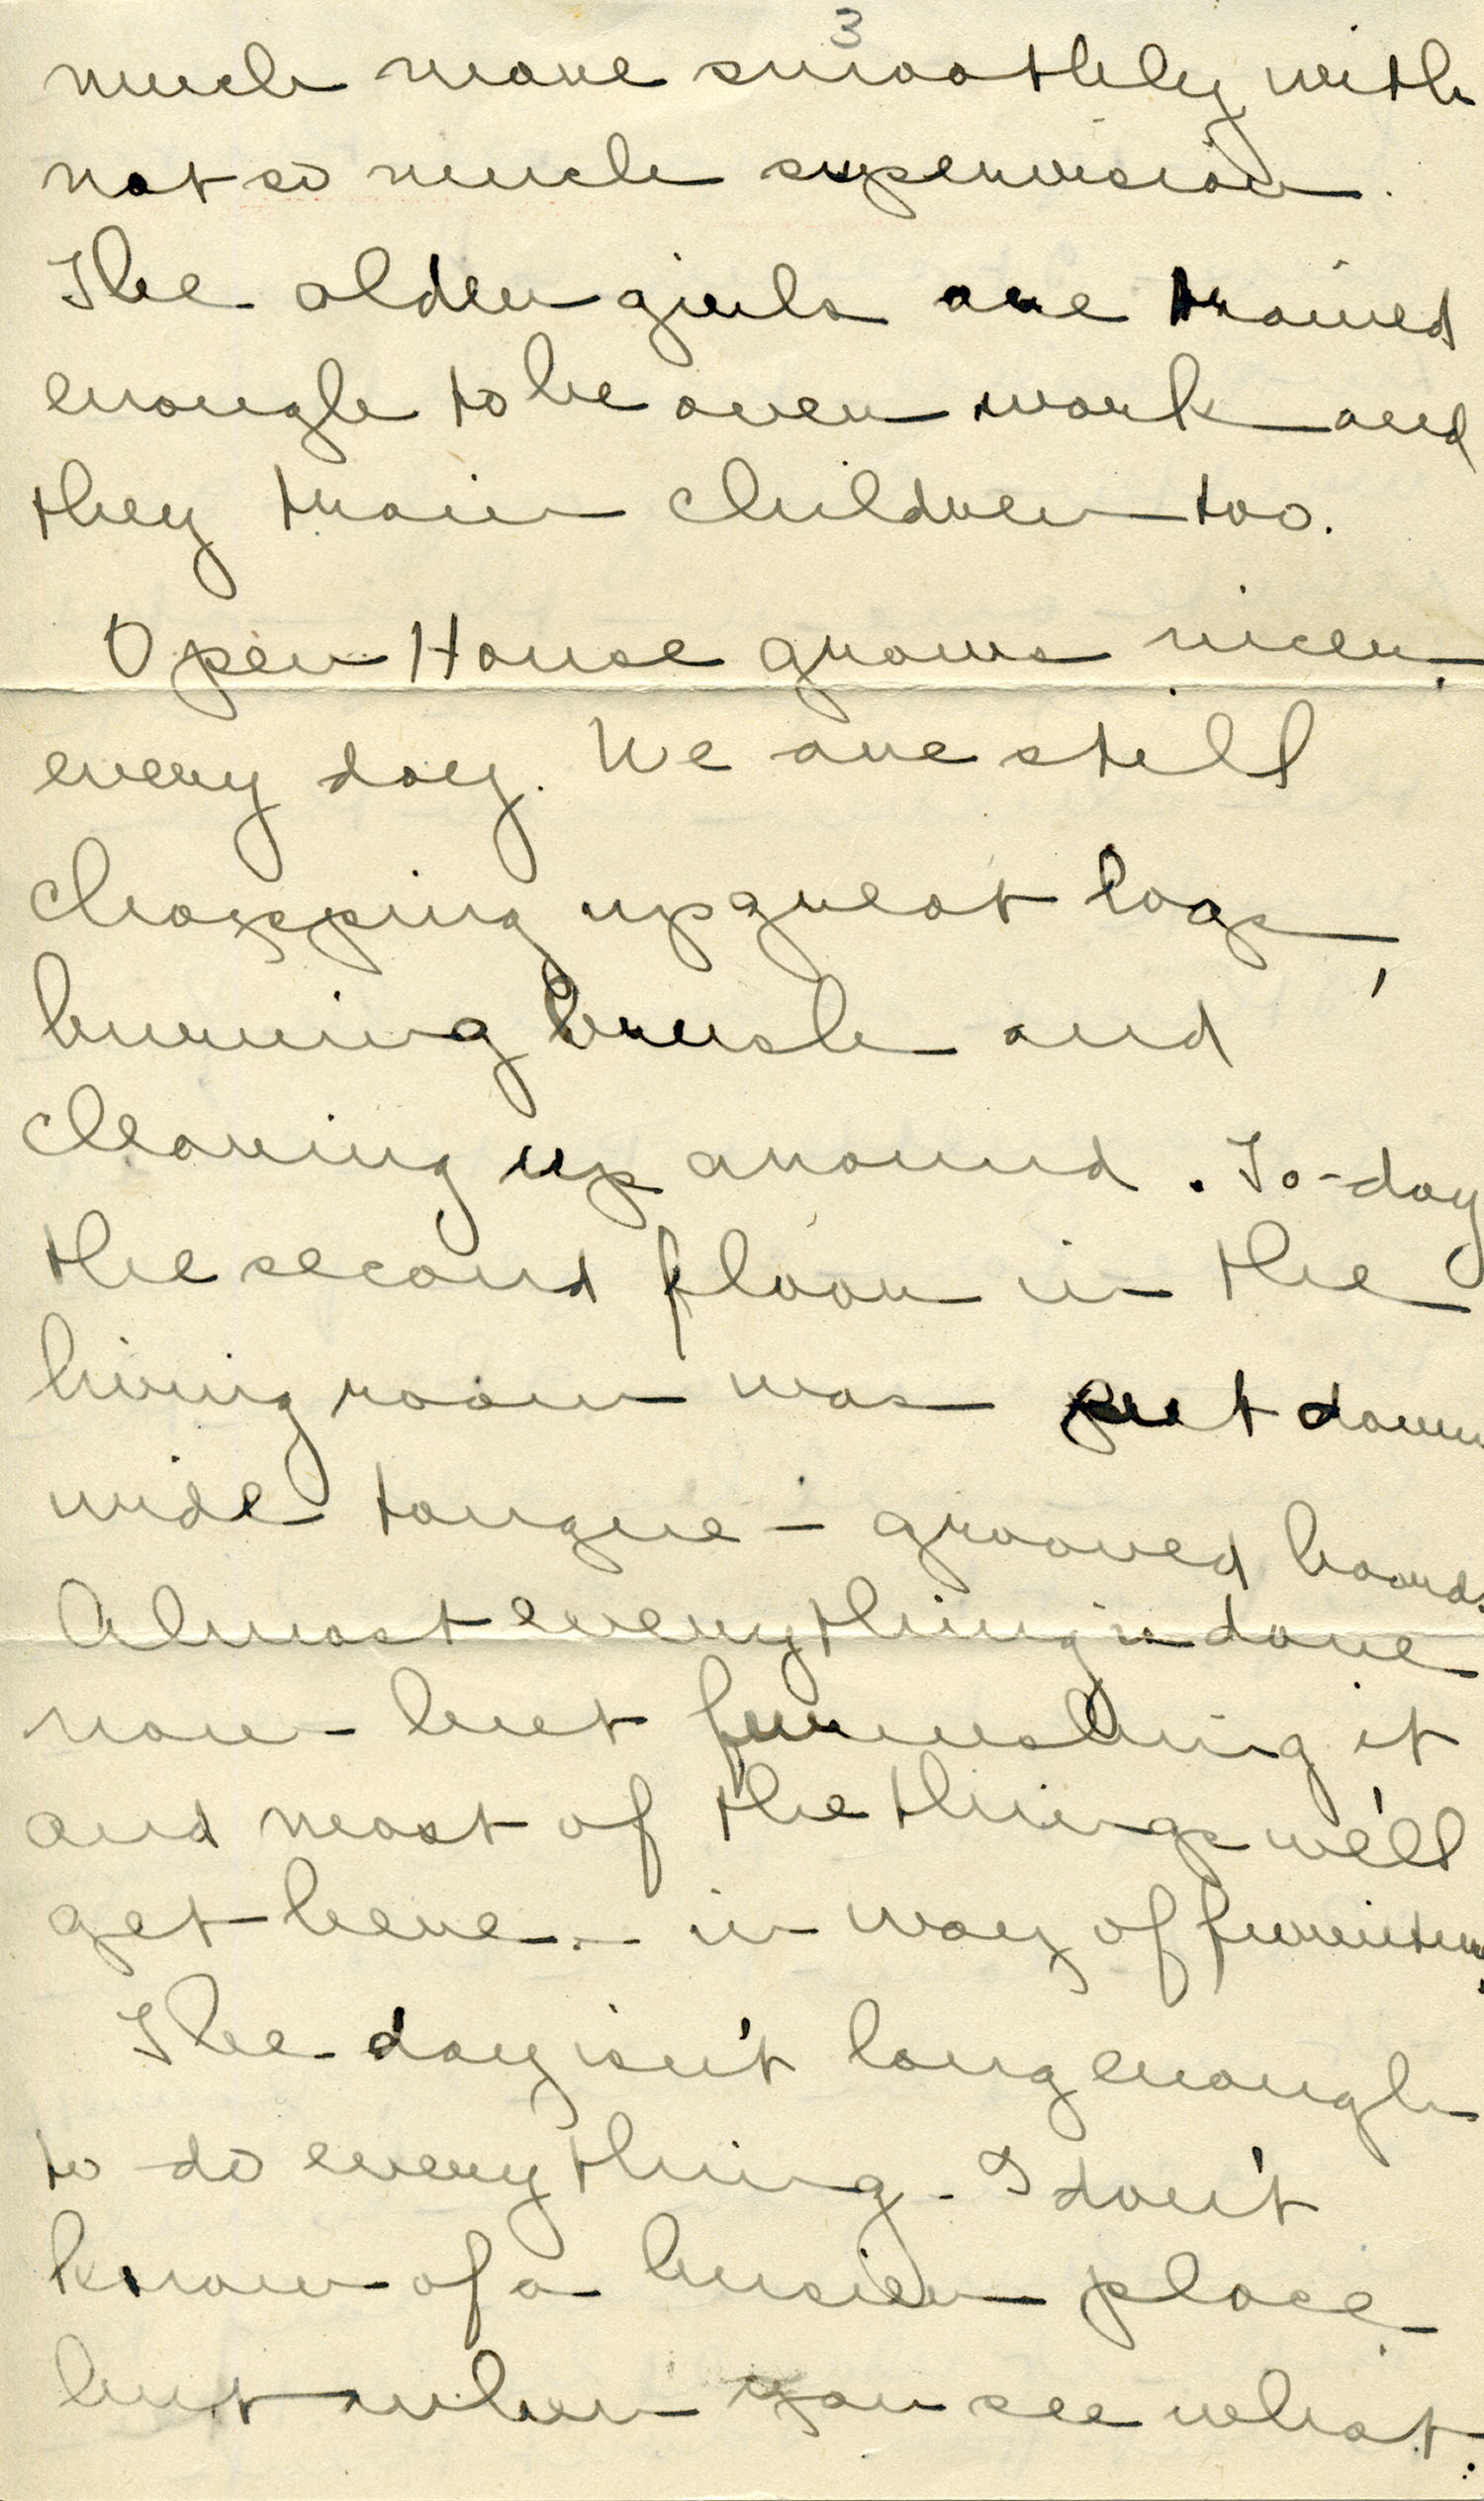 3
much more smoothly with
not so much supervision.
The older girls are trained
enough to be over work and
they train children too.
Open House grows nicer
every day. We are still
chopping up great logs,
burning brush and
clearing up around. To-day
the second floor in the
living room was put down
wide tongue - grooved boards.
Almost everything is done
now - but furnishing it
and most of the things we'll
get here - in way of furniture.
The day isn't long enough
to do everything. I don't
know of a busier place
but when you see what